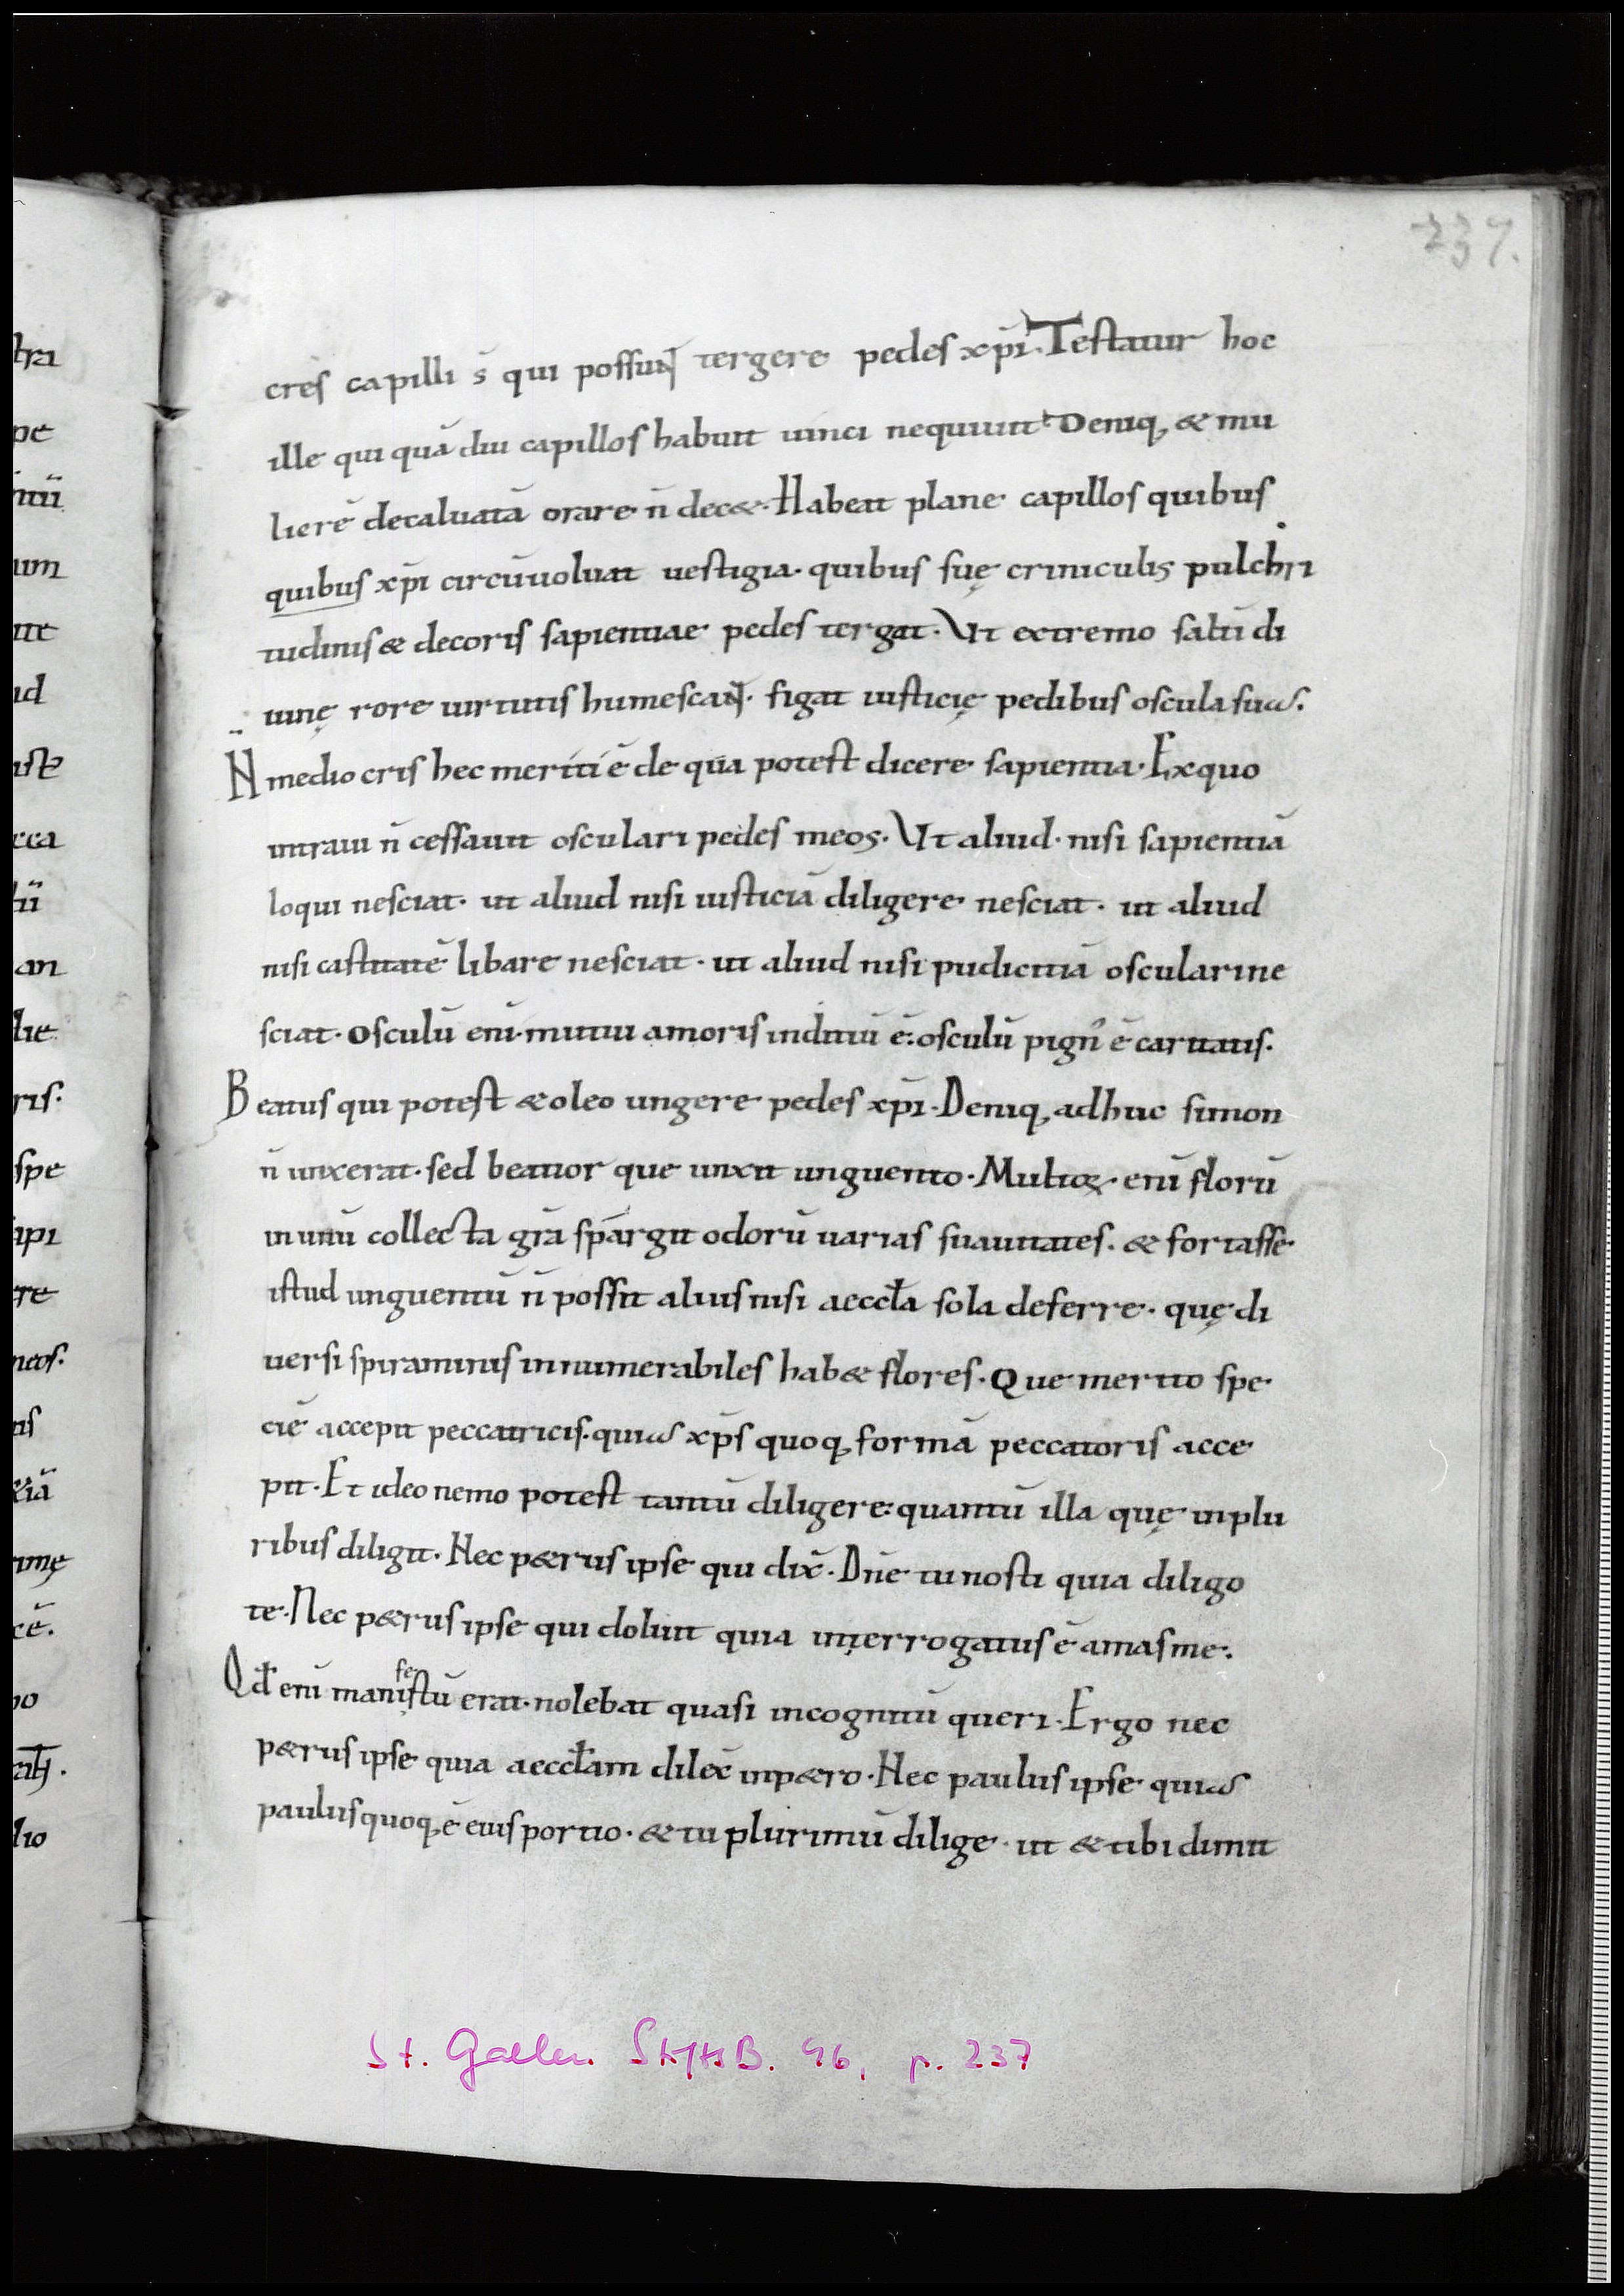 237.
cres capilli s̄ qui possunt tergere pedes xp̄i. Testatur hoc
ille qui quā diu capillos habuit uinci nequiuit. Deniq; & mu
lierē decaluatā orare n̄ dec&. Habeat plane capillos quibus
quibus xp̄i circūuoluat uestigia. quibus suę criniculis pulchri
tudinis & decoris sapientiae pedes tergat. Vt extremo saltī di
uinę rore uirtutis humescant. figat iusticię pedibus oscula sua.
N mediocris hec meriti ē de qua potest dicere sapientia. Ex quo
intraui n̄ cessauit osculari pedes meos. Vt aliud. nisi sapientiā
loqui nesciat. ut aliud nisi iusticiā diligere nesciat. ut aliud
nisi castitatē libare nesciat. ut aliud nisi pudicitiā osculari ne
sciat. Osculū enī mutui amoris inditiū ē: osculū pign᾽ ē caritatis.
Beatus qui potest & oleo ungere pedes xp̄i. Deniq; adhuc simon
n̄ unxerat. sed beatior que unxit unguento. Multoꝝ. enī florū
in unū collecta gr̄a spargit odorū uarias suauitates. & fortasse
istud unguentū n̄ possit alius nisi aeccła sola deferre. quę di
uersi spiraminis innumerabiles hab& flores. Que merito spe
ciē accepit peccatricis. quia xp̄s quoq; formā peccatoris acce
pit. Et ideo nemo potest tantū diligere: quantū illa quę in plu
ribus diligit. Nec p&rus ipse qui dix̄. Dn̄e tu nosti quia diligo
te. Nec p&rus ipse qui doluit quia interrogatus ē amas me.
Qđ enī manifestū erat. nolebat quasi incognitū queri. Ergo nec
p&rus ipse quia aeccłam dilex̄ in p&ro. Nec paulus ipse quia
paulus quoq; ē eius portio. & tu plurimū dilige. ut & tibi dimit
St. Gallen StiftsB. 96, p. 237
tra
pe
um
ite
ud
cca
an
lie
ris.
spe
ipi
re
meos.
lio